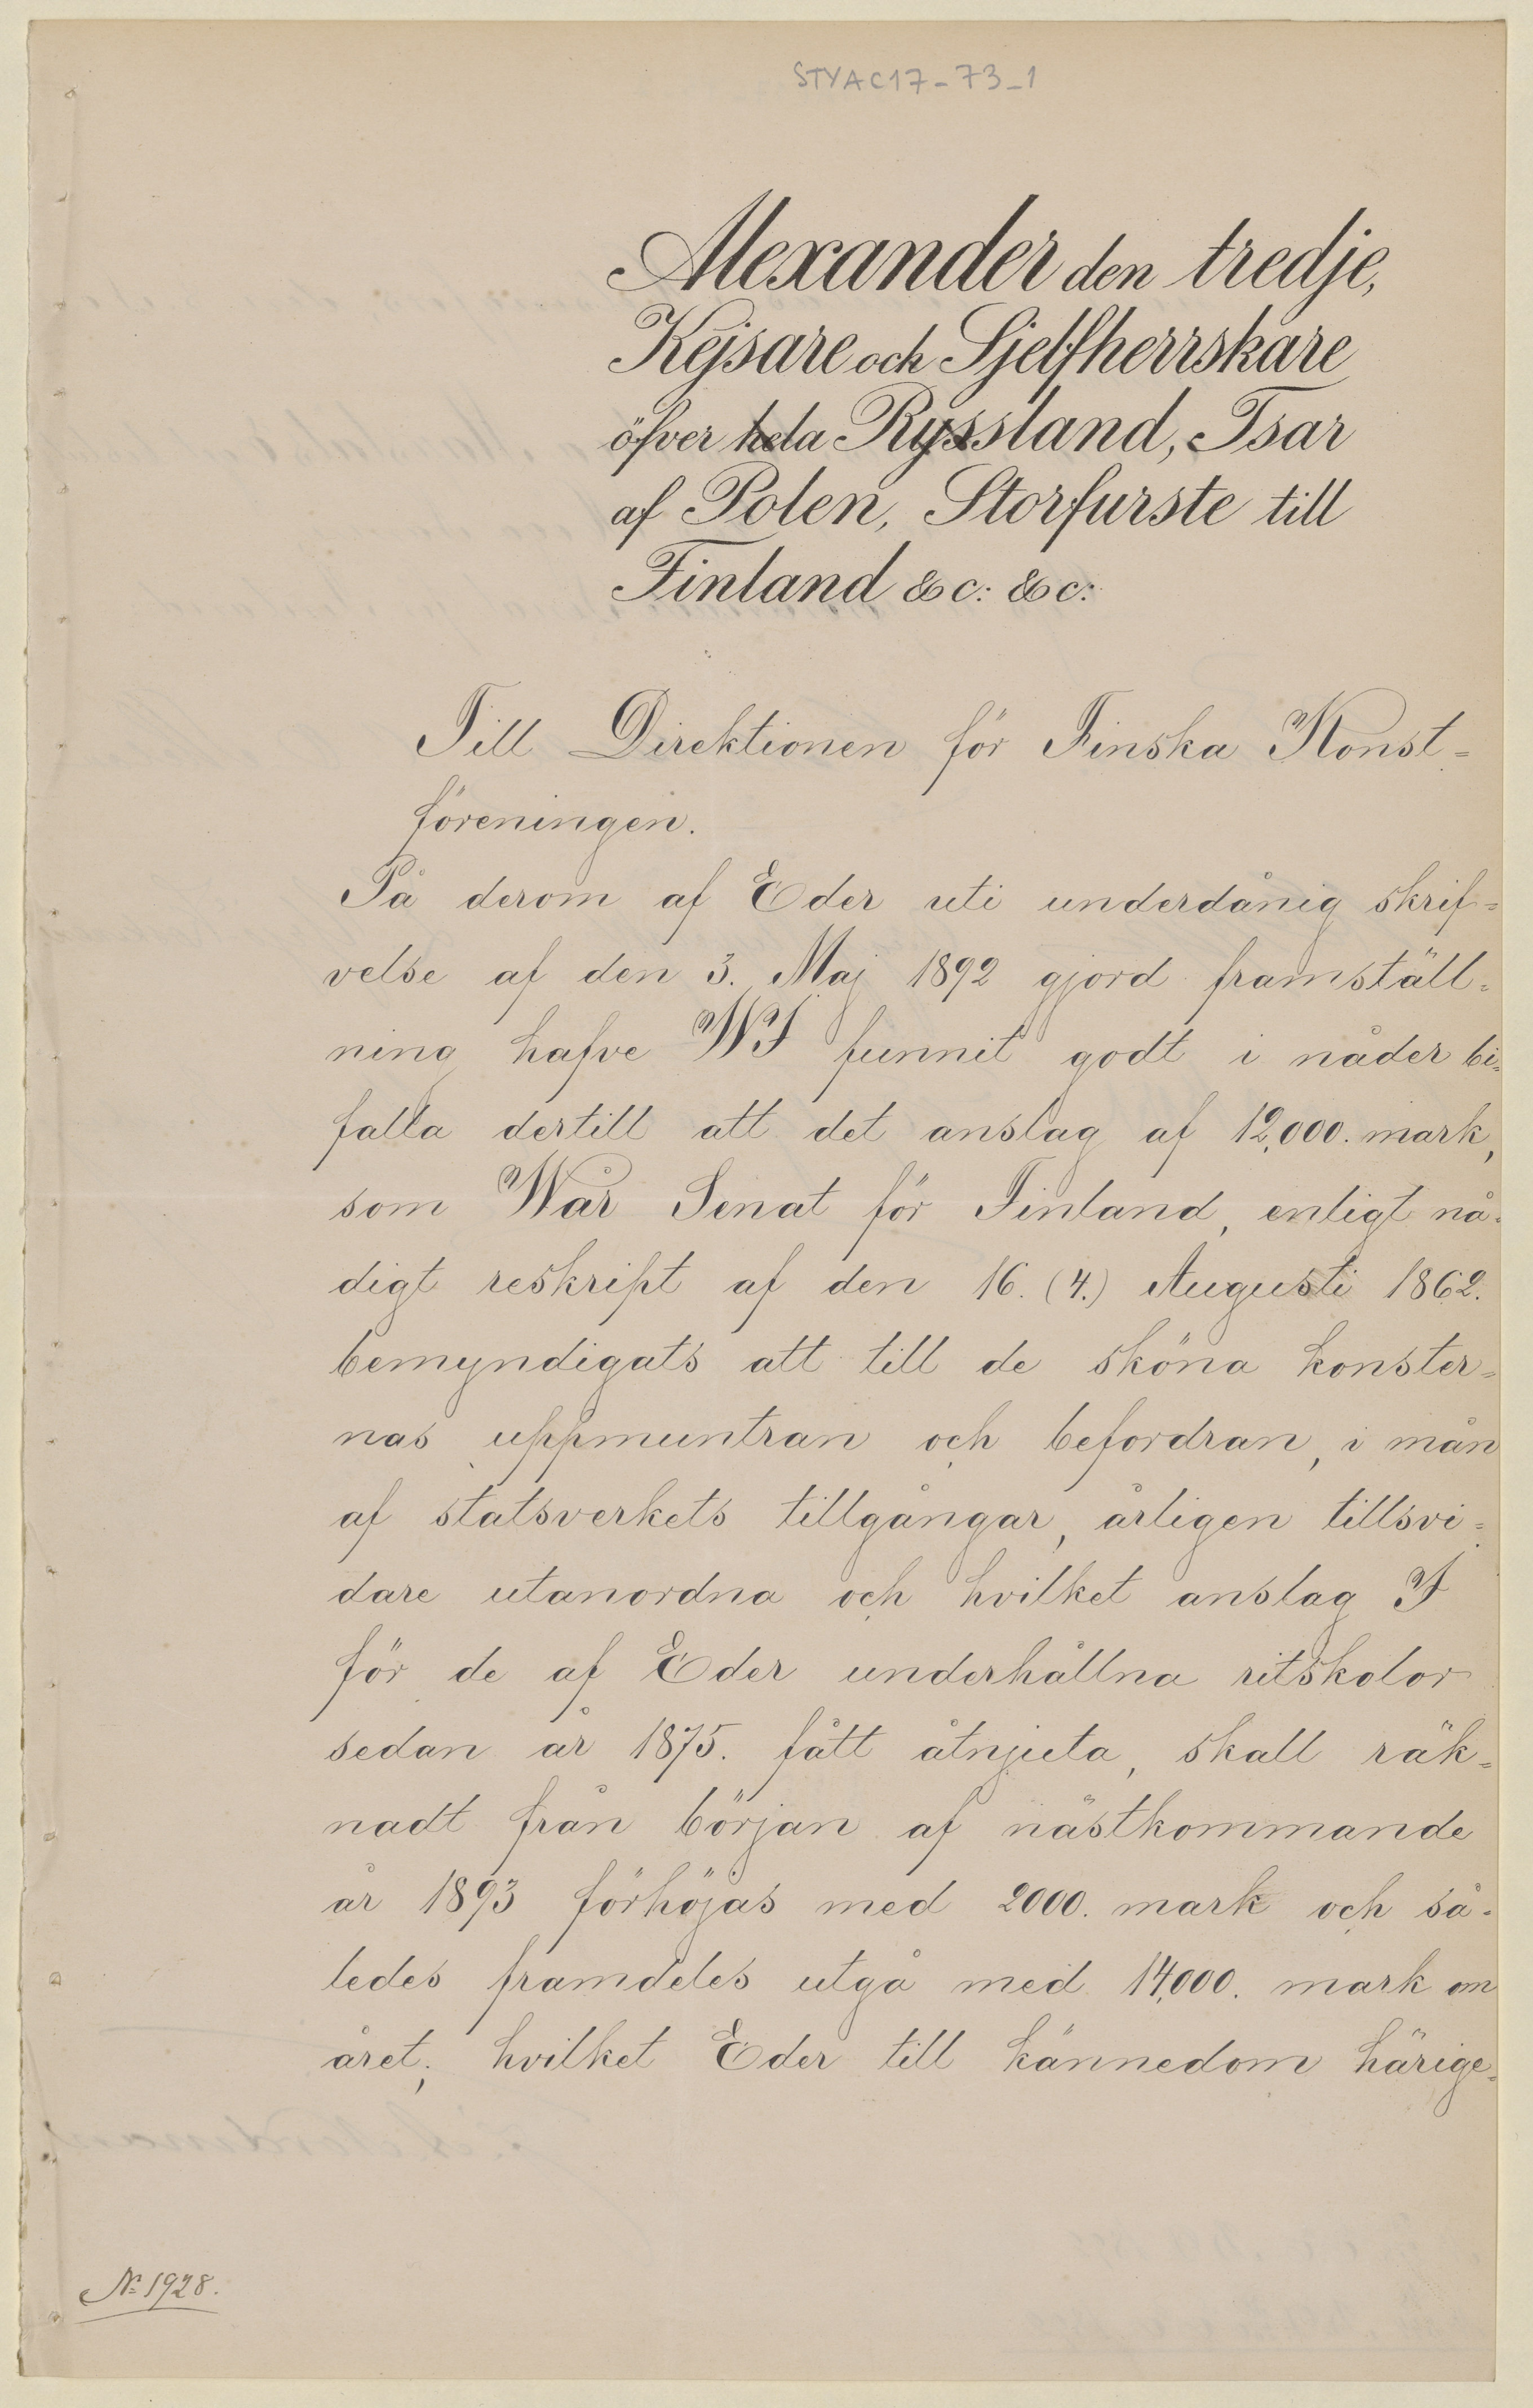 STYAC17-73_1
Alexander den tredje,
Kejsare och Sjelfherrskare
öfver hela Ryssland, Tsar
af Polen, Storfurste till
Finland &c: &c:
Till Direktionen för Finska Konst=
föreningen.
På derom af Eder uti underdånig skrif=
velse af den 3. Maj 1892 gjord framställ=
ning hafve WI funnit godt i nåder bi=
falla dertill att det anslag af 12,000. mark,
som Wår Senat för Finland, enligt nå=
digt reskript af den 16. (4.) Augusti 1862.
bemyndigats att till de sköna konster=
nas uppmuntran och befordran, i mån
af statsverkets tillgångar, årligen tillsvi=
dare utanordna och hvilket anslag I
för de af Eder underhållna ritskolor
sedan år 1875. fått åtnjuta, skall räk=
nadt från början af nästkommande
år 1893 förhöjas med 2000. mark och så=
ledes framdeles utgå med 14,000. mark om
året; hvilket Eder till kännedom härige=
No 1928.